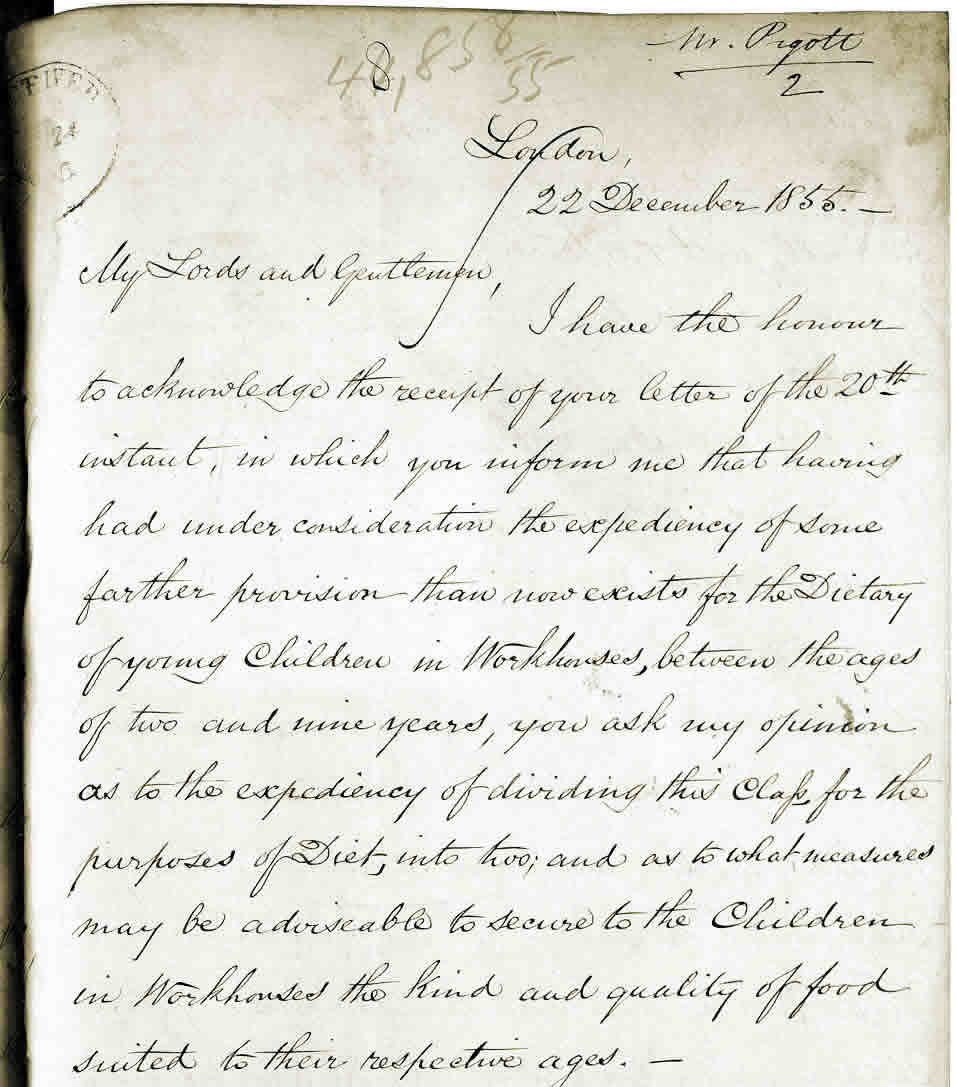 48,858
55
Mr. Pigott
2
London,
22 December 1855. —
My Lords and Gentlemen,
I have the honour
to acknowledge the receipt of your letter of the 20th
instant, in which you inform me that having
had under consideration the expediency of some
farther provision than now exists for the Dietary
of young Children in Workhouses, between the ages
of two and nine years, you ask my opinion
as to the expediency of dividing this Claſs, for the
purposes of Diet, into two; and as to what measures
may be adviseable to secure to the Children
in Workhouses the kind and quality of food
suited to their respective ages. —